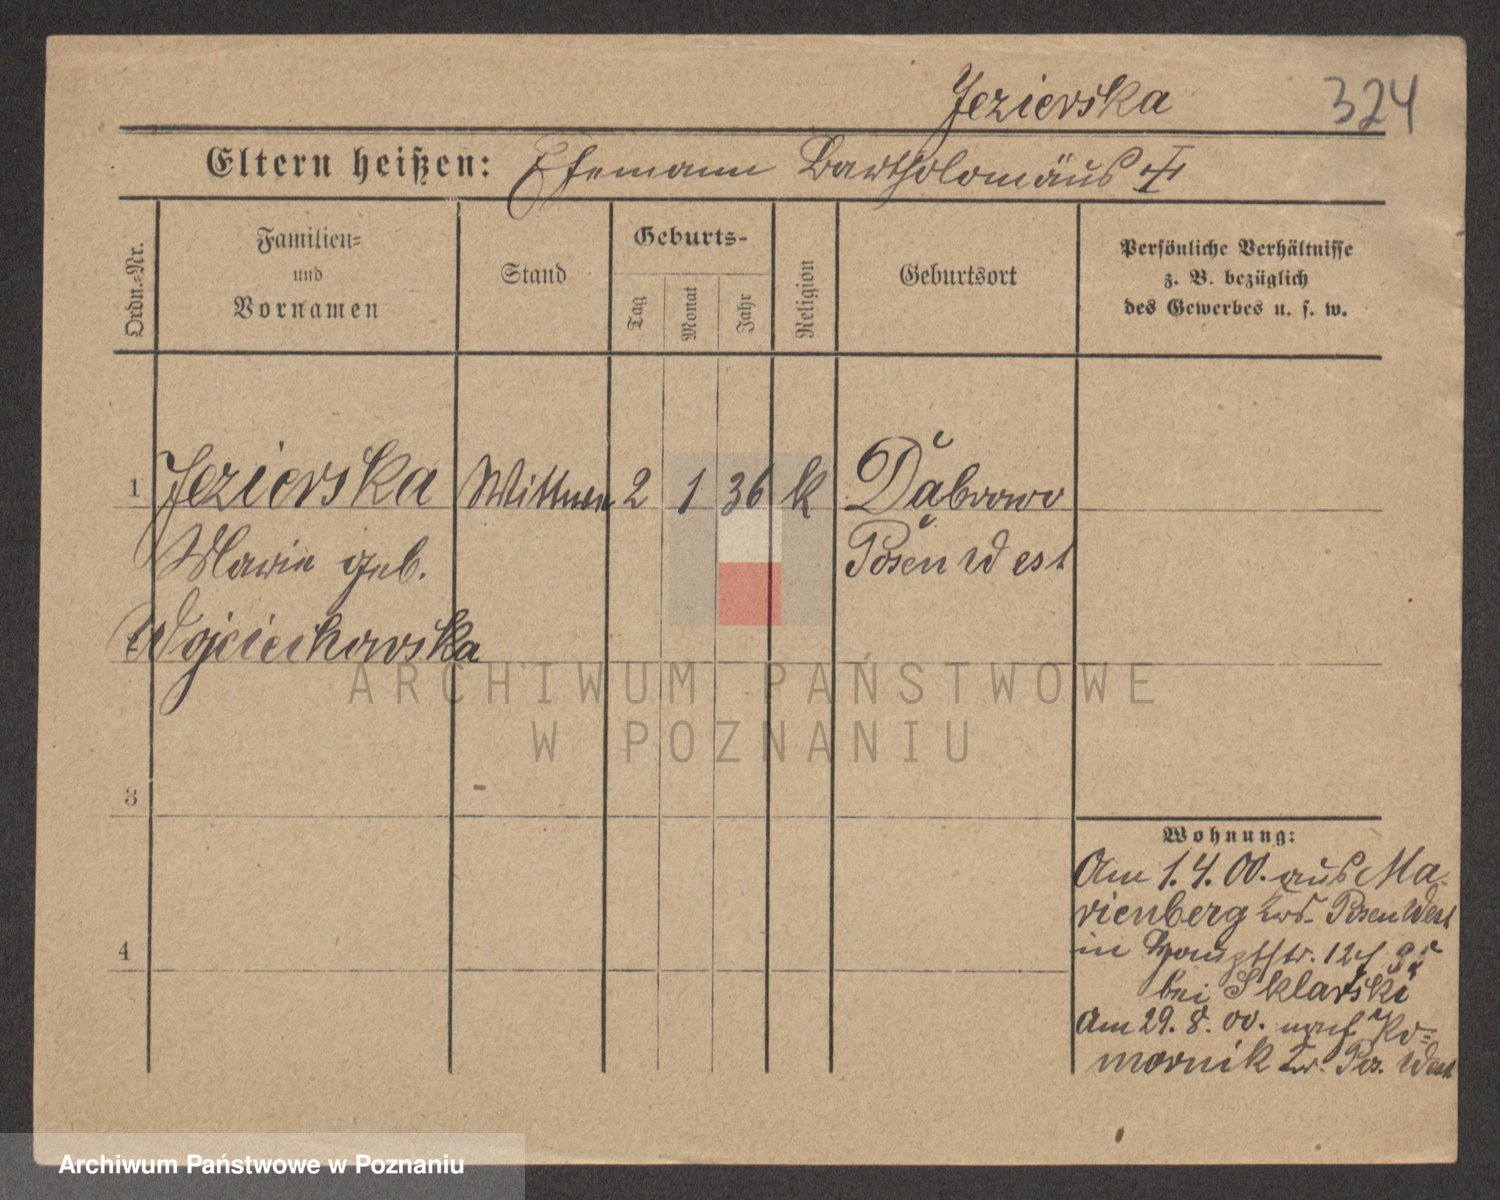 Jezierska 324
Eltern heißen: Ehemann Bartholomäus ‡
Ordn.-Nr.
Familien-
und
Vornamen
Stand
Geburts-
Tag
Monat
Jahr
Religion
Geburtsort
Persönliche Verhältnisse
z. B. bezüglich
des Gewerbes u. s. w.
1 Jezierska Wittwe 2 1 36 k Dabrowo
Marie geb. Posen West
Wojciechowska
ARCHIWUM PAŃSTWOWE
W POZNANIU
3
Wohnung:
Am 1.4.00. aus Ma-
rienberg Krs. Posen West
in Hauptstr. 124
bei Sklarski
4
Am 29.8.00. nach Ko=
mornik Kr. Pos. West
Archiwum Państwowe w Poznaniu